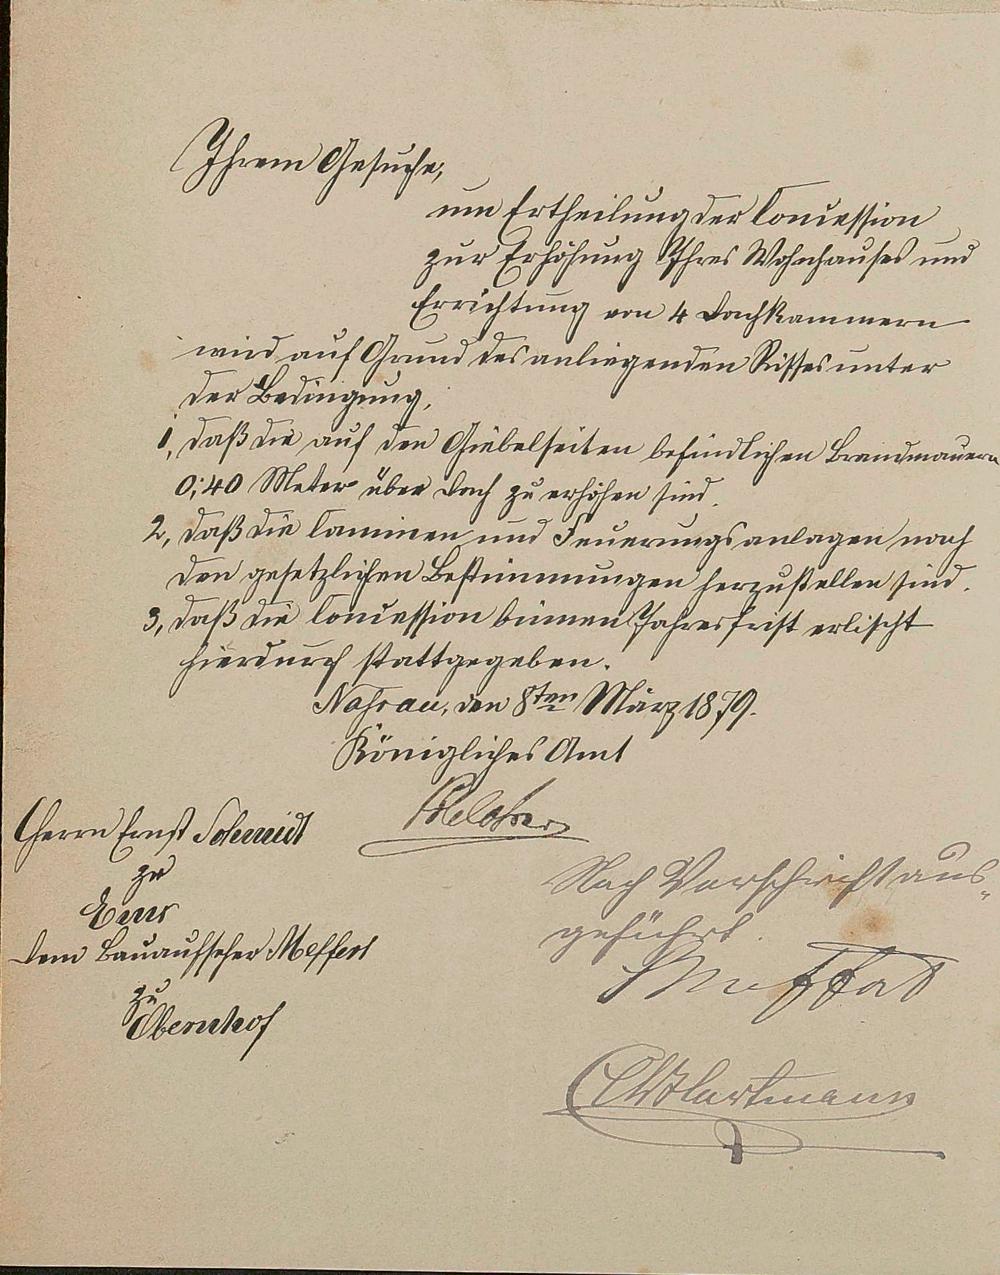 Ihrem Gesuche,
um Ertheilung der Concession
zur Erhöhung Ihres Wohnhauses und
Errichtung von 4 Dachkammern
wird auf Grund des anliegenden Risses unter
der Bedingung,
1, daß die auf den Giebelseiten befindlichen Brandmauern
0,40 Meter über Dach zu erhöhen sind.
2, daß die Caminen und Feuerungsanlagen nach
den gesetzlichen Bestimmungen herzustellen sind.
3, daß die Concession binnen Jahresfrist erlischt
hierdurch stattgegeben.
Nassau, den 8ten März 1879.
Königliches Amt
Herrn Ernst Schmidt
zu
Ems
dem Bauaufseher Meffert
zu
Obernhof
Nach Vorschrift aus-
geführt.
Meffert
Hartmann